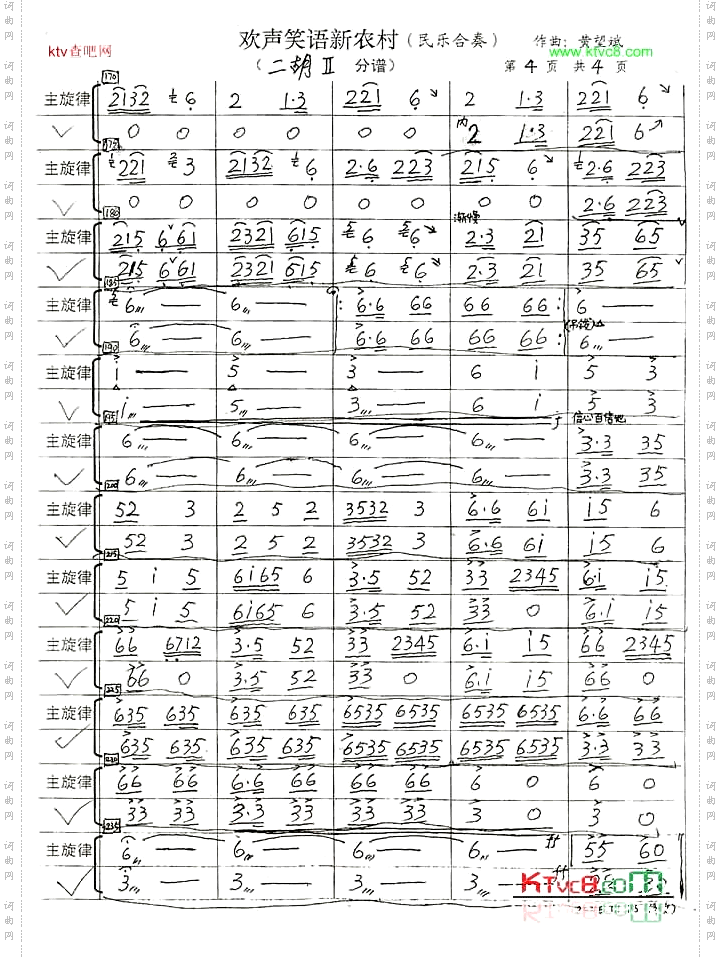 ktv查吧网 欢声笑语新农村(民乐合奏) 作曲:黄望斌
www.ktvc8.com
(二胡Ⅱ 分谱) 第4页 共4页
170
主旋律 2132 6 2 1·3 221 6 2 1·3 221 6
0 0 0 0 0 0 内 2 1·3 221 6
主旋律 221 3 2132 6 2·6 223 215 6 2·6 223
0 0 0 0 0 0 0 0 2·6 223
180 渐慢
主旋律 215 661 2321 615 6 6 2·3 21 35 65
215 661 2321 615 6 6 2·3 21 35 65
185
主旋律 6 — 6 — 6·6 66 66 66 6 —
6 — 6 — 6·6 66 66 66 6 —
190
主旋律 i — 5 — 3 — 6 i 5 3
i — 5 — 3 — 6 i 5 3
195 f 信心百倍地
主旋律 6 — 6 — 6 — 6 — 3·3 35
6 — 6 — 6 — 6 — 3·3 35
200
主旋律 52 3 2 5 2 3532 3 6·6 6i i5 6
52 3 2 5 2 3532 3 6·6 6i i5 6
215
主旋律 5 i 5 6i65 6 3·5 52 33 2345 6·i i5
5 i 5 6i65 6 3·5 52 33 0 6·i i5
220
主旋律 66 6712 3·5 52 33 2345 6·i i5 66 2345
66 0 3·5 52 33 0 6·i i5 66 0
225
主旋律 635 635 635 635 6535 6535 6535 6535 6·6 66
635 635 635 635 6535 6535 6535 6535 3·3 33
230
主旋律 66 66 6·6 66 66 66 6 0 6 0
33 33 3·3 33 33 33 3 0 3 0
235
主旋律 6 — 6 — 6 — 6 — ff 55 60
3 — 3 — 3 — 3 — ff
KTvc8.com
词曲网